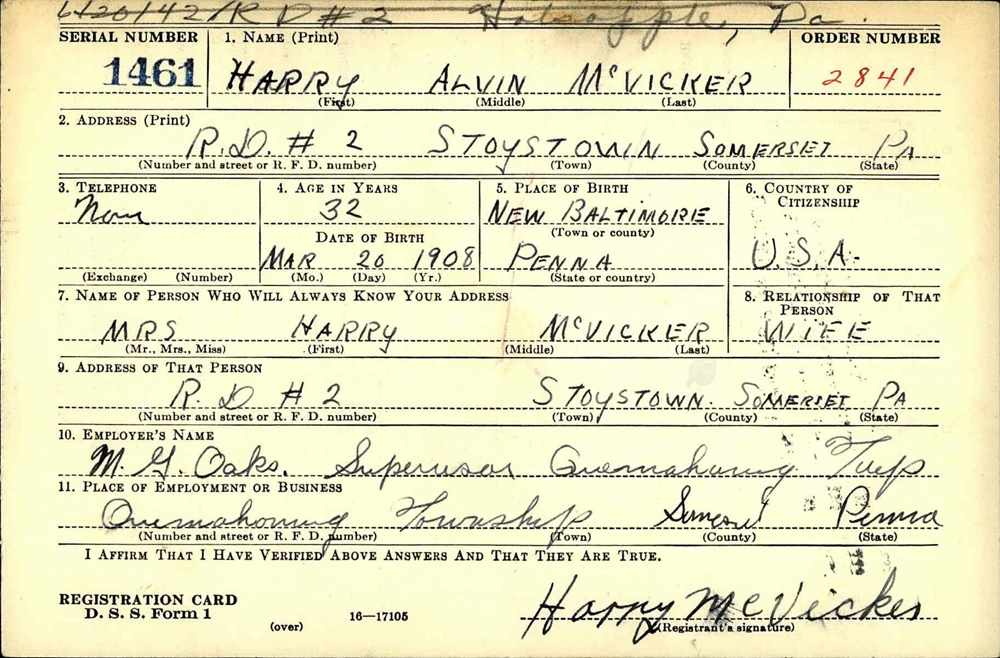 6/20/42/R D # 2 Holsopple, Pa.
SERIAL NUMBER 1. NAME (Print) ORDER NUMBER
1461 HARRY ALVIN McVICKER 2841
(First) (Middle) (Last)
2. ADDRESS (Print)
R.D. # 2 STOYSTOWN SOMERSET PA
(Number and street or R. F. D. number) (Town) (County) (State)
3. TELEPHONE 4. AGE IN YEARS 5. PLACE OF BIRTH 6. COUNTRY OF CITIZENSHIP
Non 32 NEW BALTIMORE
DATE OF BIRTH (Town or county)
MAR 20 1908 PENNA U.S.A.
(Exchange) (Number) (Mo.) (Day) (Yr.) (State or country)
7. NAME OF PERSON WHO WILL ALWAYS KNOW YOUR ADDRESS 8. RELATIONSHIP OF THAT PERSON
MRS HARRY McVICKER WIFE
(Mr., Mrs., Miss) (First) (Middle) (Last)
9. ADDRESS OF THAT PERSON
R. D # 2 STOYSTOWN. SOMERSET PA
(Number and street or R. F. D. number) (Town) (County) (State)
10. EMPLOYER'S NAME
M. G. Oaks. Supervisor Quemahoning Twp
11. PLACE OF EMPLOYMENT OR BUSINESS
Quemahoning Township Penna
(Number and street or R. F. D. number) (Town) (County) (State)
I AFFIRM THAT I HAVE VERIFIED ABOVE ANSWERS AND THAT THEY ARE TRUE.
REGISTRATION CARD
D. S. S. Form 1 16—17105 Harry McVicker
(over) (Registrant's signature)